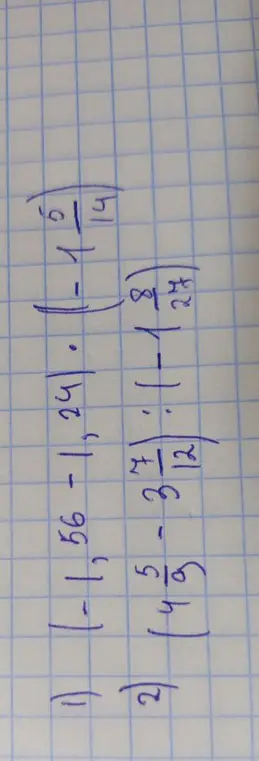 1) (-1,56 - 1,24) · (-1 5/14)
2) (4 5/9 - 3 7/12) : (-1 8/27)